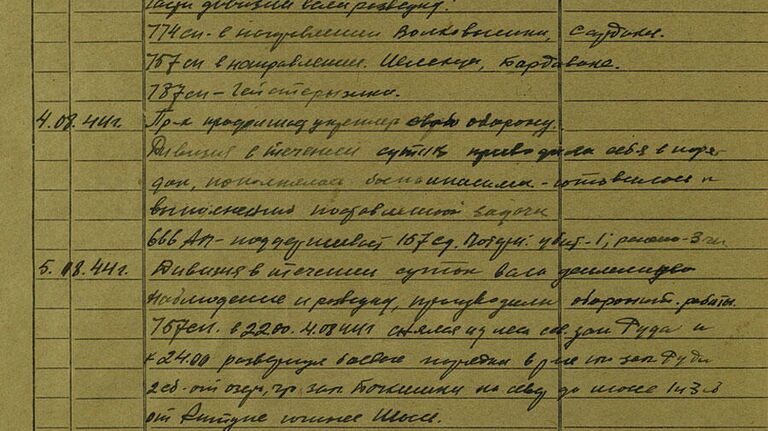 Части дивизии вели разведку:
774 сп - в направлении Волковышки,
757 сп в направлении
787 сп -
4.08.44г. Пр-к продолжает укреплять свою оборону.
Дивизия в течении суток приводила себя в поря-
док, пополнялась боеприпасами - готовилась к
выполнению поставленной задачи
666 АП - поддерживает 157 сд. Потери: убит - 1; ранено - 3 чел
5.08.44г. Дивизия в течении суток вела
наблюдение и разведку, производила оборонит. работы.
757 сп. в 22.00 4.08.44г снялся из леса зап Руда и
к 24.00 развернул боевые порядки в р-не зап. Руда
2 сб - от озер, зап. на до 1 и 3 сб
от южнее